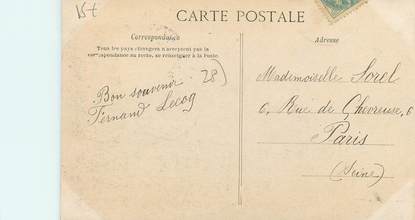 15 €
CARTE POSTALE
Correspondance
Tous les pays étrangers n'acceptent pas la
correspondance au recto, se renseigner à la Poste
Adresse
28)
Bon souvenir
Fernand Lecoq
Mademoiselle Sorel
6, Rue de Chevreuse, 6
Paris
(Seine)